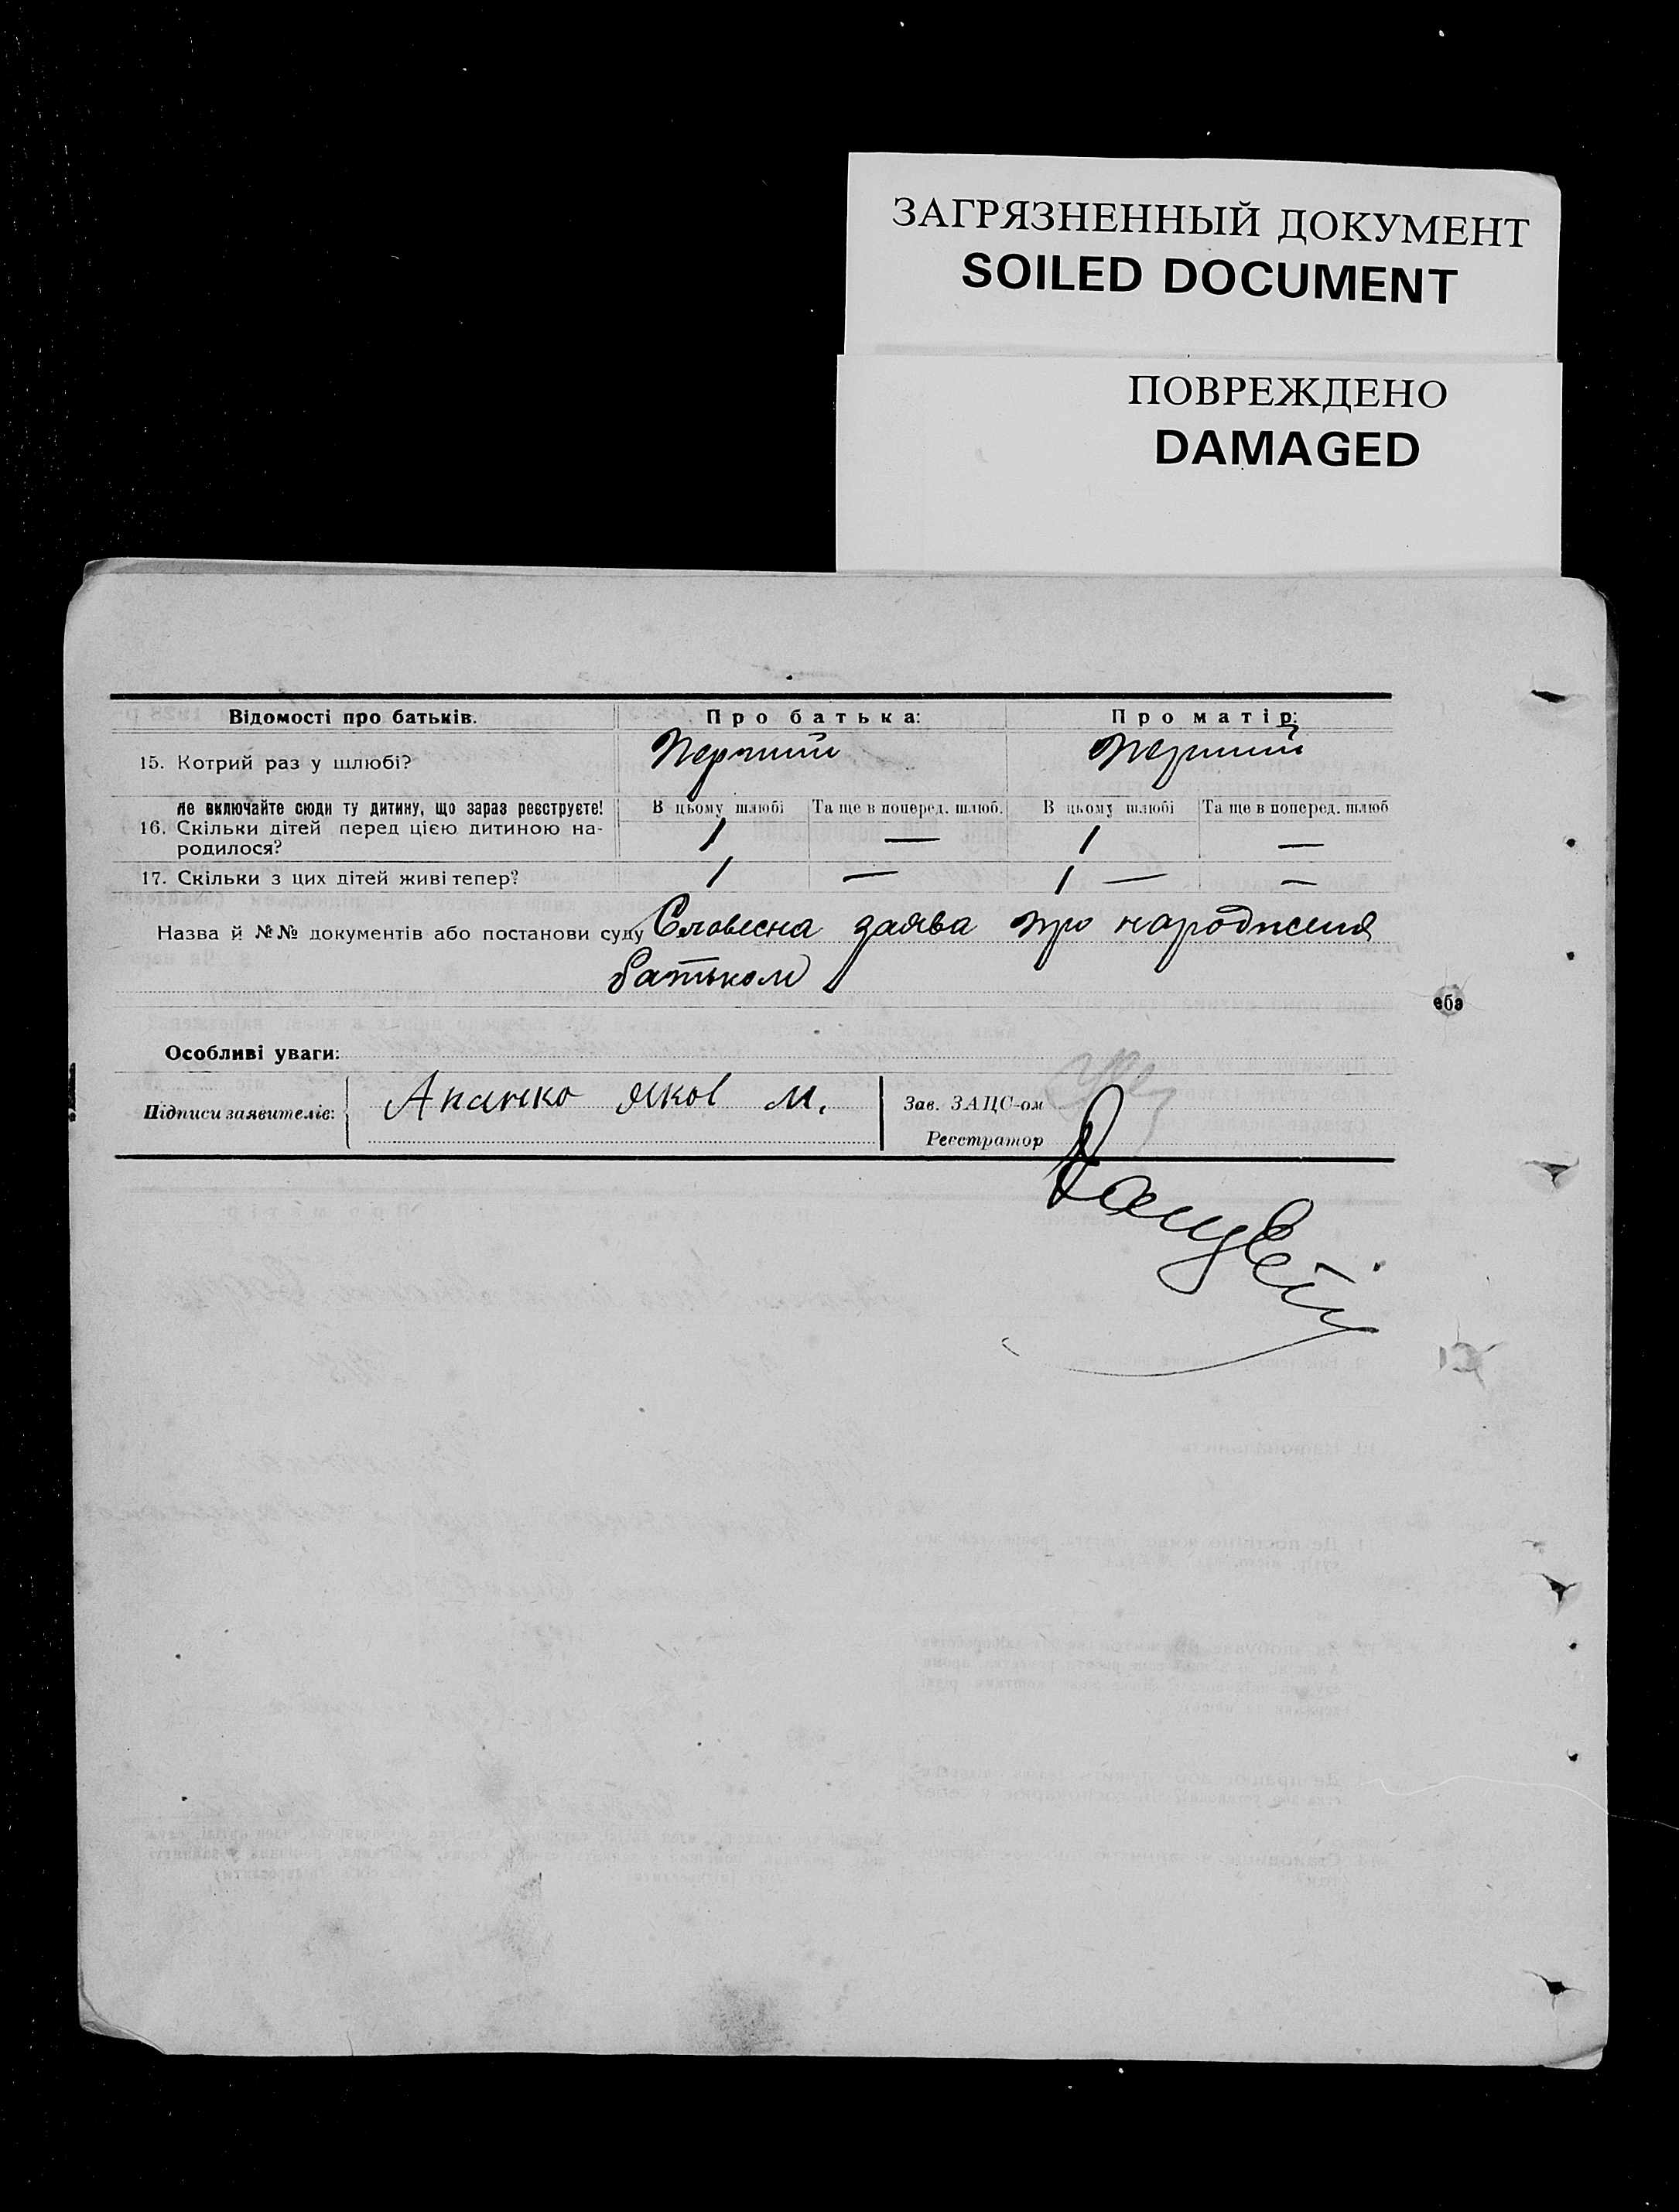 ЗАГРЯЗНЕННЫЙ ДОКУМЕНТ
SOILED DOCUMENT
ПОВРЕЖДЕНО
DAMAGED
Відомості про батьків. Про батька: Про матір:
15. Котрий раз у шлюбі? Перший Перший
Не включайте сюди ту дитину, що зараз реєструєте! В цьому шлюбі Та ще в поперед. шлюб. В цьому шлюбі Та ще в поперед. шлюб
16. Скільки дітей перед цією дитиною на-
родилося? 1 — 1 —
17. Скільки з цих дітей живі тепер? 1 — 1 — —
Назва й №№ документів або постанови суду Словесна заява про народження
батьком
еба
Особливі уваги:
Підписи заявителів: Апанко Яков М. Зав. ЗАЦС-ом
Реєстратор